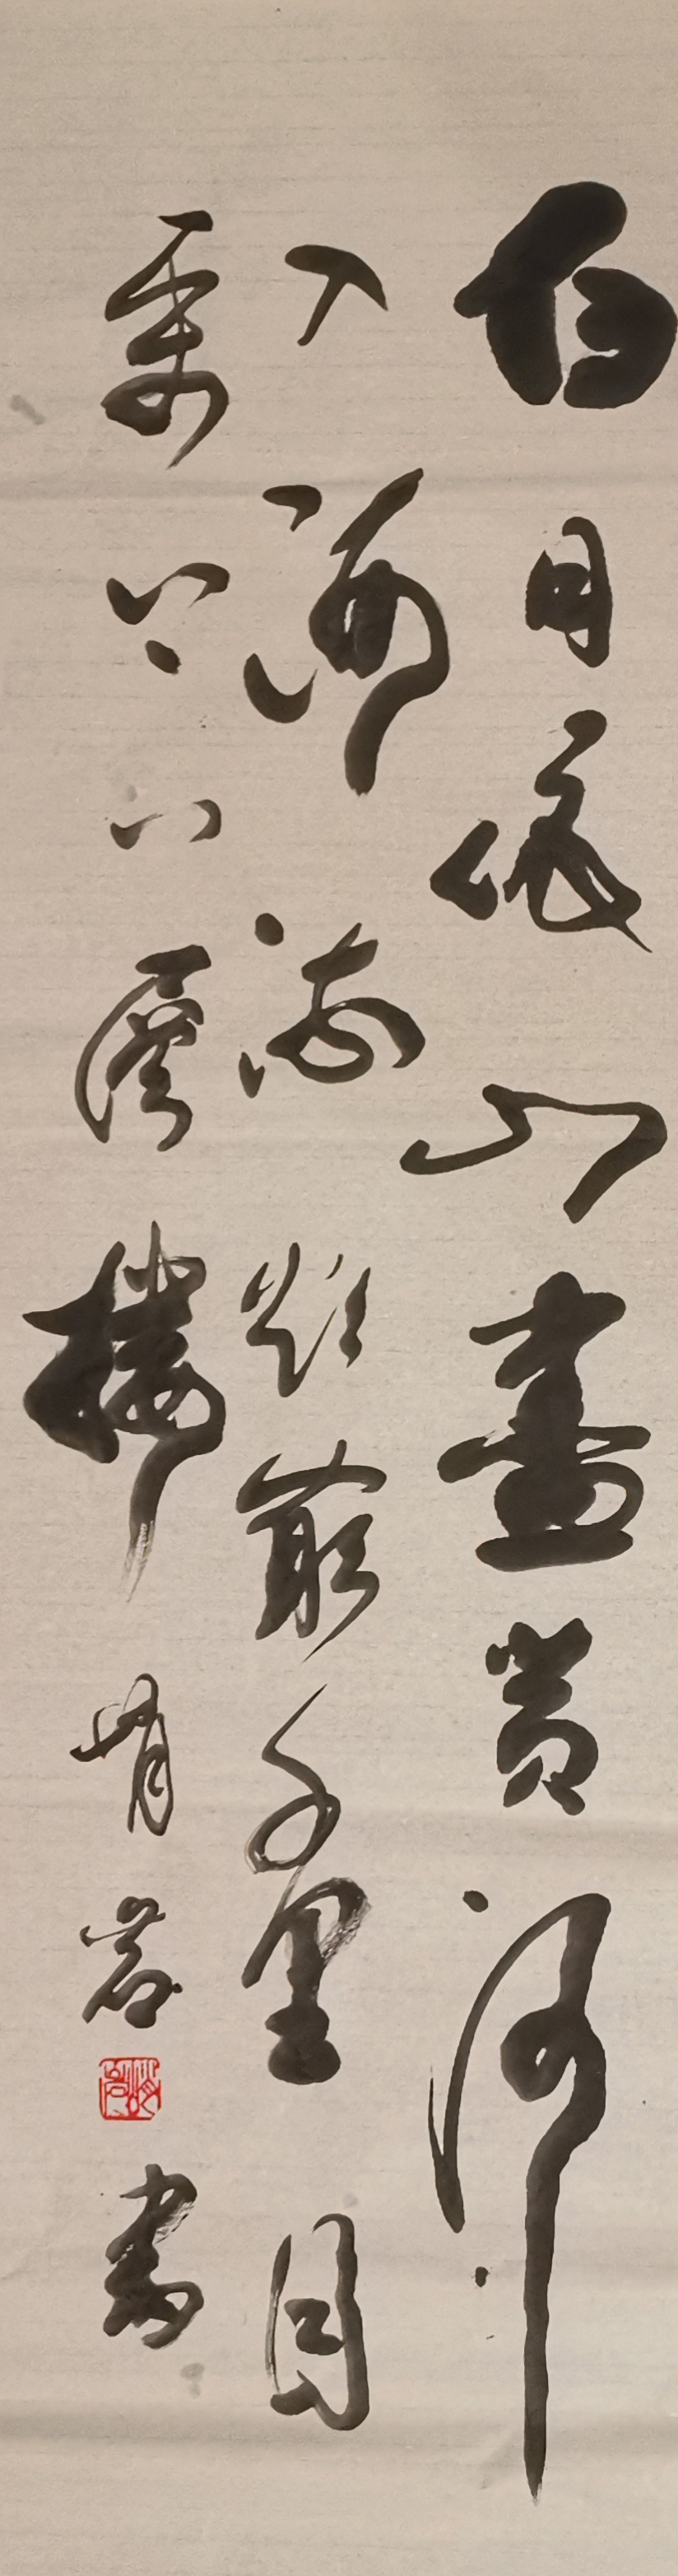 白日依山盡黃河
入海流欲窮千里目
更上一層樓 峭岩書